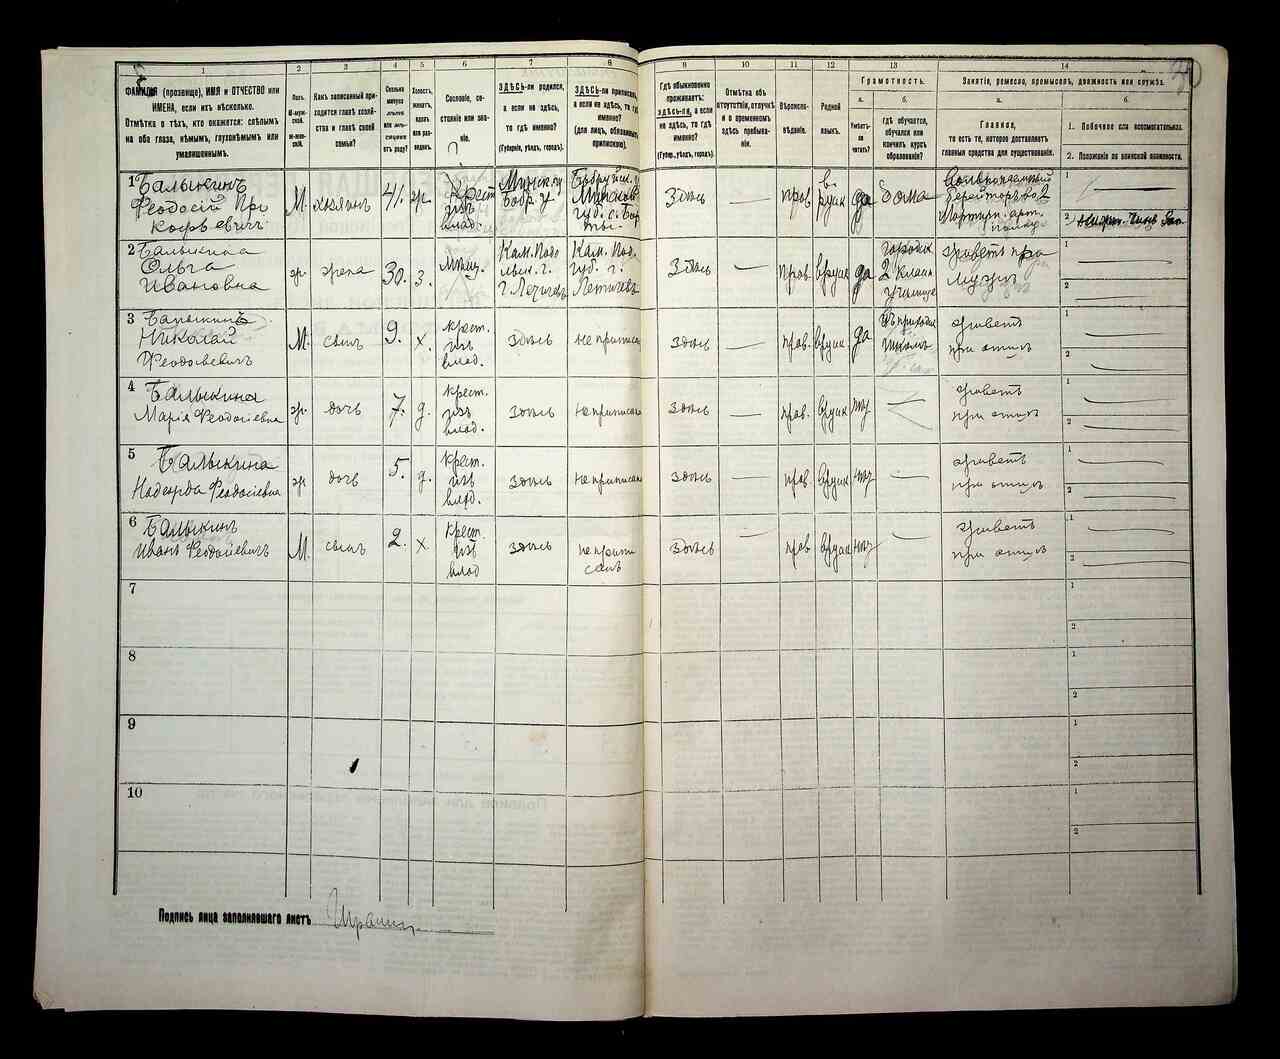 1 2 3 4 5 6 7 8 9 10 11 12 13 14
ФАМИЛІЯ (прозвище), ИМЯ и ОТЧЕСТВО или
ИМЕНА, если ихъ нѣсколько.
Отмѣтка о тѣхъ, кто окажется: слѣпымъ
на оба глаза, нѣмымъ, глухонѣмымъ или
умалишеннымъ.
Полъ.
М-муж-
ской.
Ж-жен-
скій.
Какъ записанный при-
ходится главѣ хозяй-
ства и главѣ своей
семьи?
Сколько
минуло
лѣтъ
или мѣ-
сяцевъ
отъ роду?
Холостъ,
женатъ,
вдовъ
или раз-
веденъ.
Сословіе, со-
стояніе или зва-
ніе.
ЗДѢСЬ-ли родился,
а если не здѣсь,
то гдѣ именно?
(Губернія, уѣздъ, городъ).
ЗДѢСЬ-ли приписанъ,
а если не здѣсь, то гдѣ
именно?
(для лицъ, обязанныхъ
припискою).
Гдѣ обыкновенно
проживаетъ:
здѣсь-ли, а если
не здѣсь, то гдѣ
именно?
(Губер., уѣздъ, городъ).
Отмѣтка объ
отсутствіи, отлучкѣ
и о временномъ
здѣсь пребыва-
ніи.
Вѣроиспо-
вѣданіе.
Родной
языкъ.
Грамотность.
а.
Умѣетъ-
ли
читать?
б.
гдѣ обучается,
обучался или
кончилъ курсъ
образованія?
Занятіе, ремесло, промыселъ, должность или служба.
а.
Главное,
то есть то, которое доставляетъ
главныя средства для существованія.
б.
1. Побочное или вспомогательное.
2. Положеніе по воинской повинности.
1 Балыкинъ
Феодосій Про
кофьевичъ
М. хозяинъ 41. ж. Крест
изъ
влад.
Минск. г
Бобр. у
Бобруйск. у
Минской
губ.
Здѣсь — прав. в.
русск да дома
2 Балыкина
Ольга
Ивановна
ж. жена 30. з. Мѣщ.
Кам. Под
льск. г.
г. Летичевъ
Кам. Под.
губ. г.
Летичевъ
Здѣсь — прав. вруск да городск
2 класн
училище
живетъ при
мужѣ
3 Балыкинъ
Николай
Феодосьевичъ
М. сынъ 9. х. крест.
изъ
влад.
здѣсь не приписа
здѣсь — прав. вруск да въ приходск
школѣ
живетъ
при отцѣ
4 Балыкина
Марія Феодосіевна
ж. дочь 7. д. крест.
изъ
влад.
здѣсь не приписана
здѣсь — прав. вруск нѣтъ
живетъ
при отцѣ
5 Балыкина
Надежда Феодосіевна
ж дочь 5. д. крест.
изъ
влад.
здѣсь не приписана
здѣсь — прав. вруск нѣтъ —
живетъ
при отцѣ
6 Балыкинъ
Иванъ Феодосіевичъ
М. сынъ 2. х. крест.
изъ
влад
здѣсь не припи
санъ
здѣсь — прав вруск нѣтъ —
живетъ
при отцѣ
7
8
9
10
Подпись лица заполнявшаго листъ